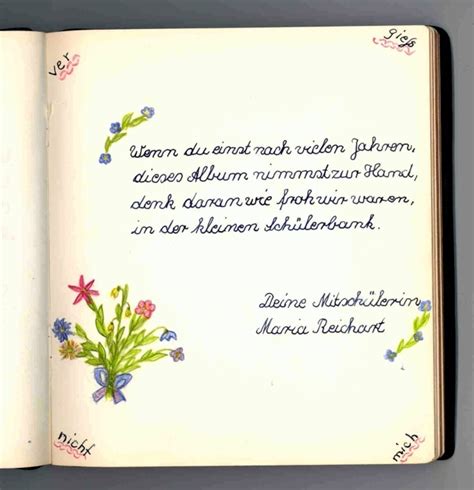 ver
gieß
Wenn du einst nach vielen Jahren,
dieses Album nimmst zur Hand,
denk daran wie froh wir waren,
in der kleinen Schülerbank.
Deine Mitschülerin
Maria Reichart
nicht
mich